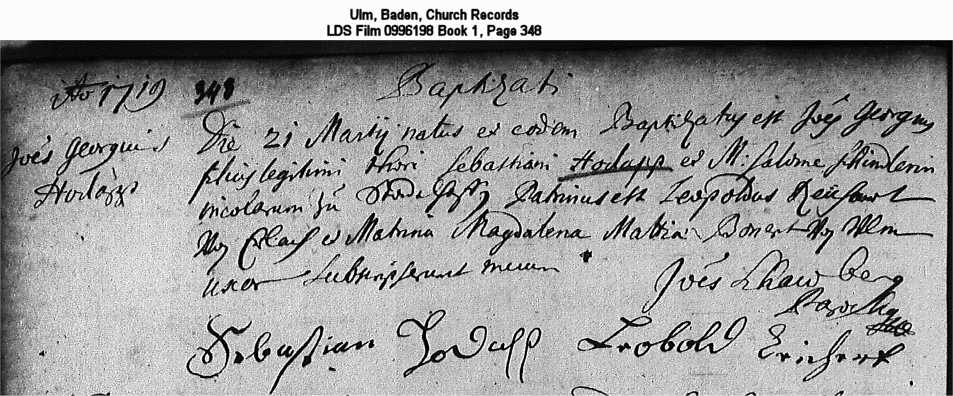 Ulm, Baden, Church Records
LDS Film 0996198 Book 1, Page 348
Ao 1719 348 Baptizati
Joes Georgius Hodapp
Die 21 Martij natus et eodem Baptizatus est Joes Georgius
filius legitimi thori Sebastiani Hodapp et M: Salome
incolarum zu Patrinus est Leopoldus
Von Erlach et Matrina Magdalena Bonert Von Ulm
uxor subscripserunt mecum
Joes
Sebastian Hodapp Leobold